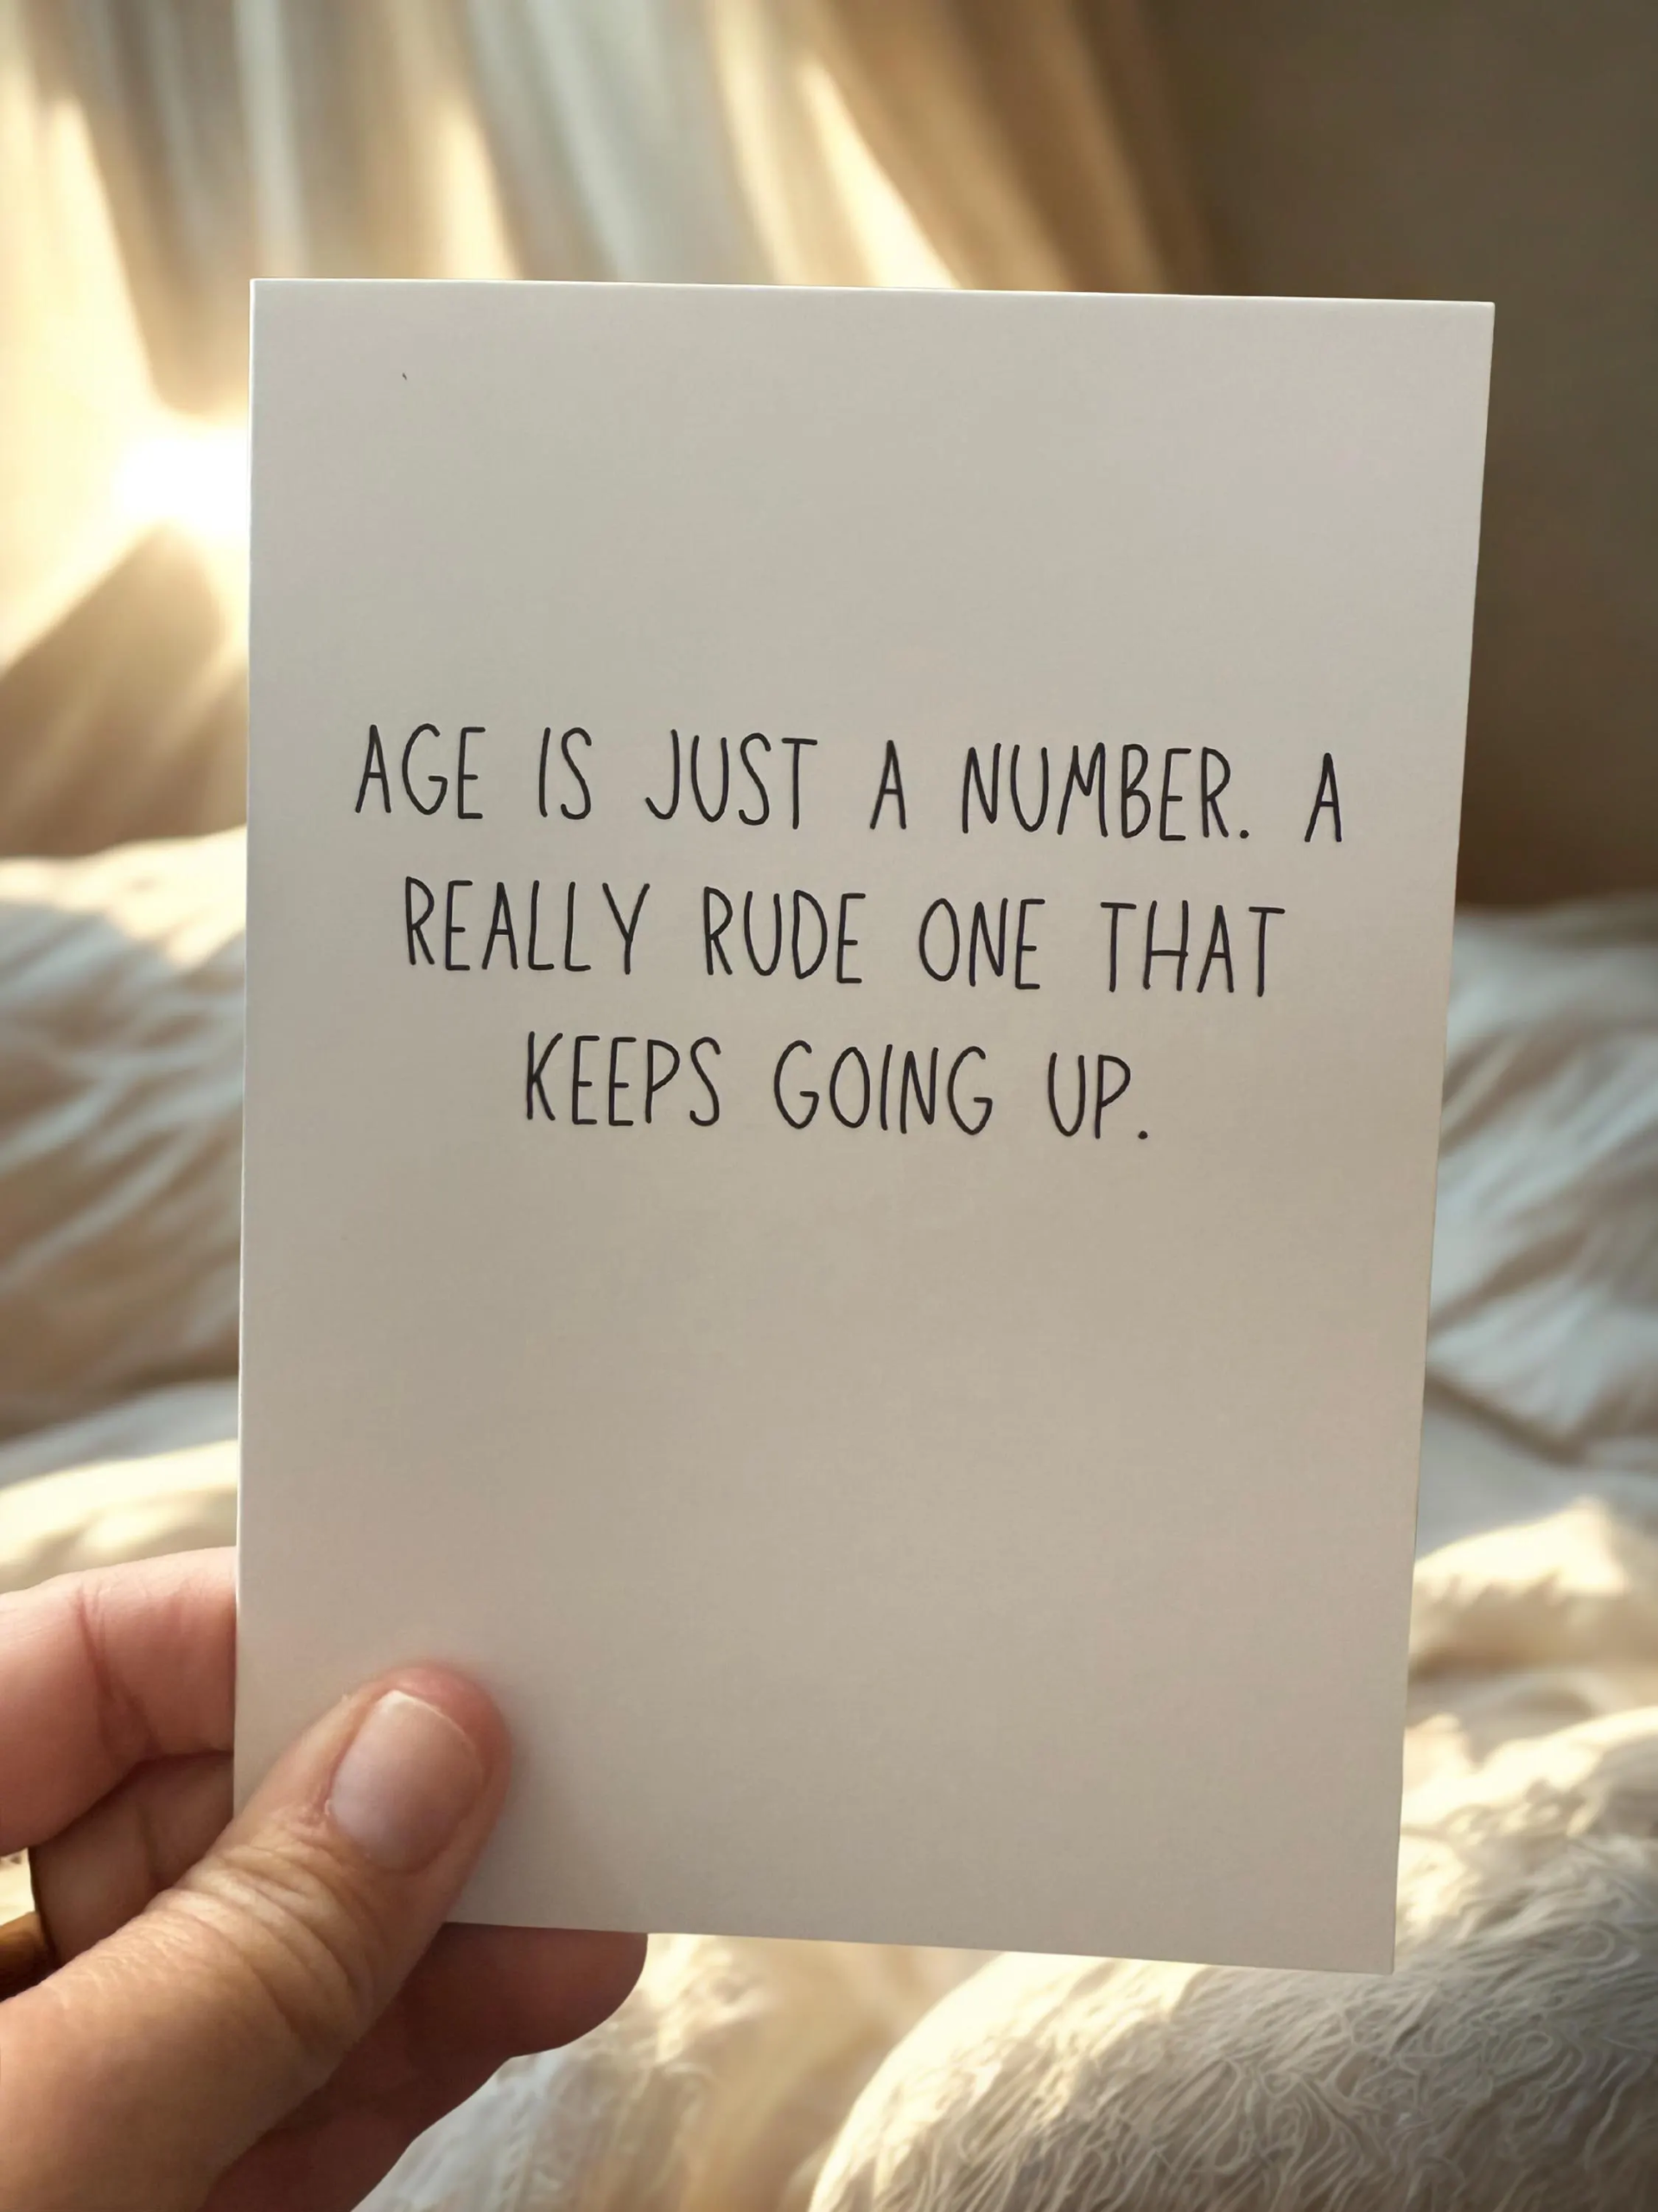 AGE IS JUST A NUMBER. A
REALLY RUDE ONE THAT
KEEPS GOING UP.